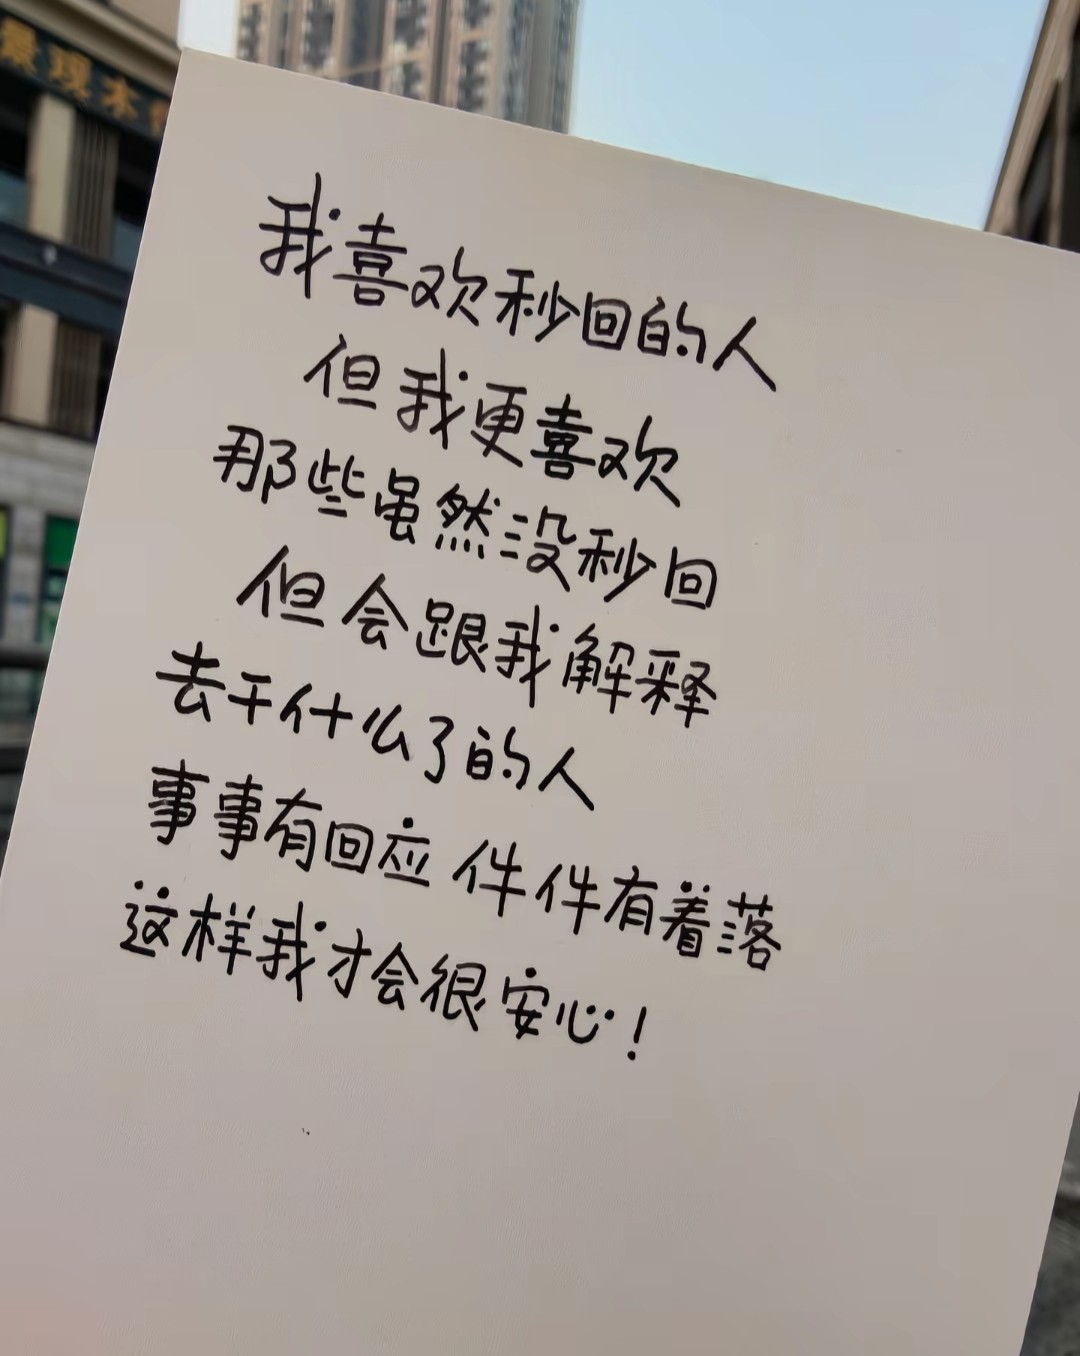 景观木
我喜欢秒回的人
但我更喜欢
那些虽然没秒回
但会跟我解释
去干什么了的人
事事有回应 件件有着落
这样我才会很安心！